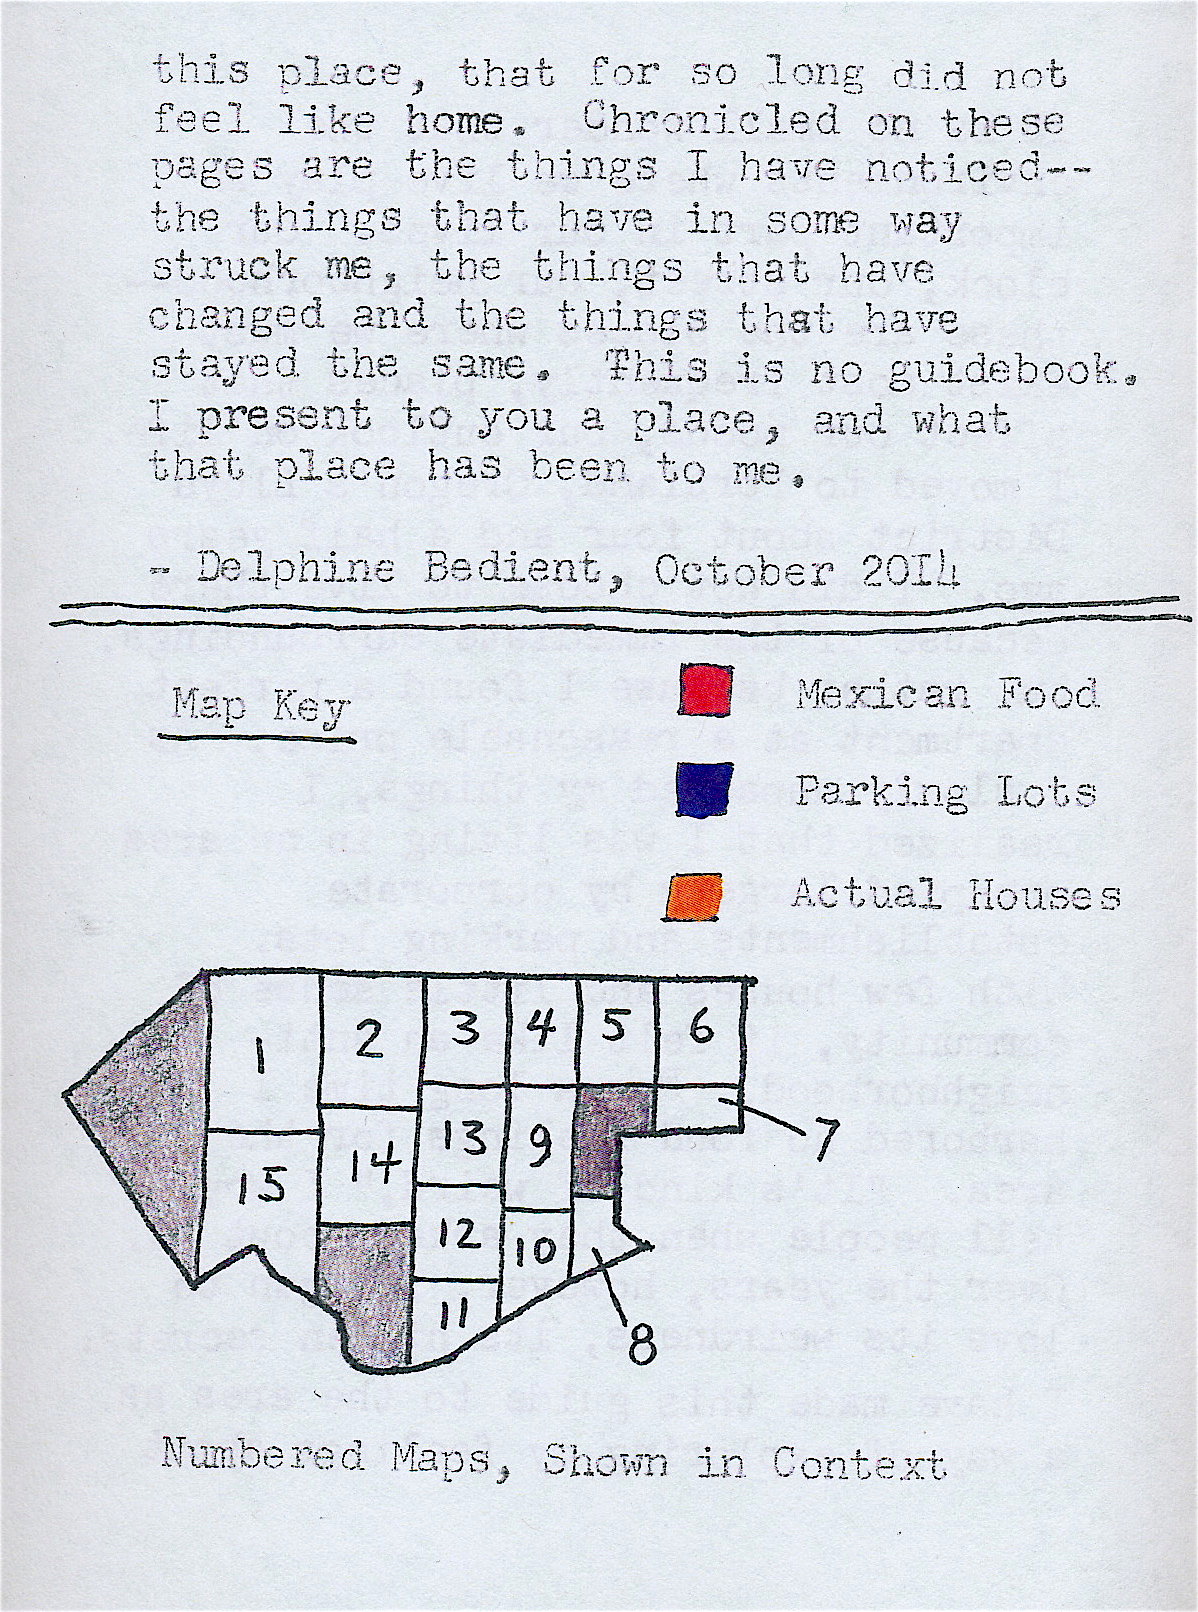 this place, that for so long did not
feel like home.  Chronicled on these
pages are the things I have noticed--
the things that have in some way
struck me, the things that have
changed and the things that have
stayed the same.  This is no guidebook.
I present to you a place, and what
that place has been to me.
- Delphine Bedient, October 2014
Map Key
Mexican Food
Parking Lots
Actual Houses
1 2 3 4 5 6
7
15 14 13 9
12 10
11
8
Numbered Maps, Shown in Context